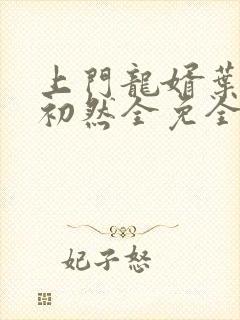 上門龍婿葉
初然全免全
妃子怒